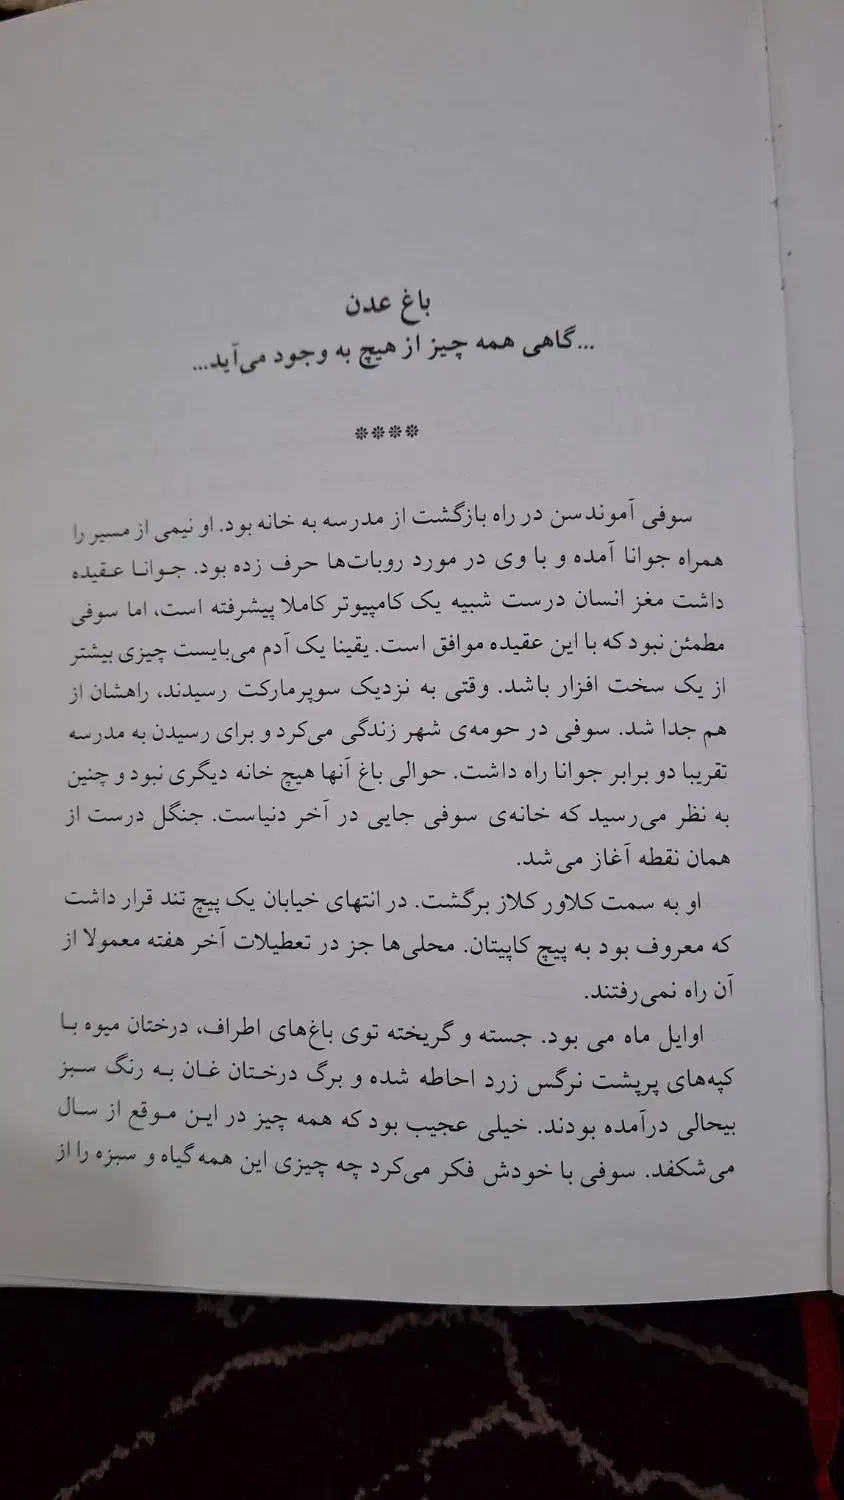 باغ عدن
...گاهی همه چیز از هیچ به وجود می‌آید...
****
سوفی آموندسن در راه بازگشت از مدرسه به خانه بود. او نیمی از مسیر را
همراه جوانا آمده و با وی در مورد روبات‌ها حرف زده بود. جوانا عقیده
داشت مغز انسان درست شبیه یک کامپیوتر کاملا پیشرفته است، اما سوفی
مطمئن نبود که با این عقیده موافق است. یقینا یک آدم می‌بایست چیزی بیشتر
از یک سخت افزار باشد. وقتی به نزدیک سوپرمارکت رسیدند، راهشان از
هم جدا شد. سوفی در حومه‌ی شهر زندگی می‌کرد و برای رسیدن به مدرسه
تقریبا دو برابر جوانا راه داشت. حوالی باغ آنها هیچ خانه دیگری نبود و چنین
به نظر می‌رسید که خانه‌ی سوفی جایی در آخر دنیاست. جنگل درست از
همان نقطه آغاز می شد.
او به سمت کلاور کلاز برگشت. در انتهای خیابان یک پیچ تند قرار داشت
که معروف بود به پیچ کاپیتان. محلی‌ها جز در تعطیلات آخر هفته معمولا از
آن راه نمی‌رفتند.
اوایل ماه می بود. جسته و گریخته توی باغ‌های اطراف، درختان میوه با
کپه‌های پرپشت نرگس زرد احاطه شده و برگ درختان غان به رنگ سبز
بیحالی درآمده بودند. خیلی عجیب بود که همه چیز در این موقع از سال
می‌شکفد. سوفی با خودش فکر می‌کرد چه چیزی این همه گیاه و سبزه را از